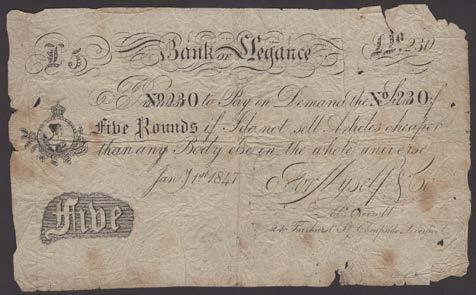 £5 Bank OF Elegance No. 230
No 230 to Pay on Demand the No 230 of
Five Rounds if I do not sell Articles cheaper
than any Body else in the whole universe
Jany 1st 1847 For Myself & Co
Five